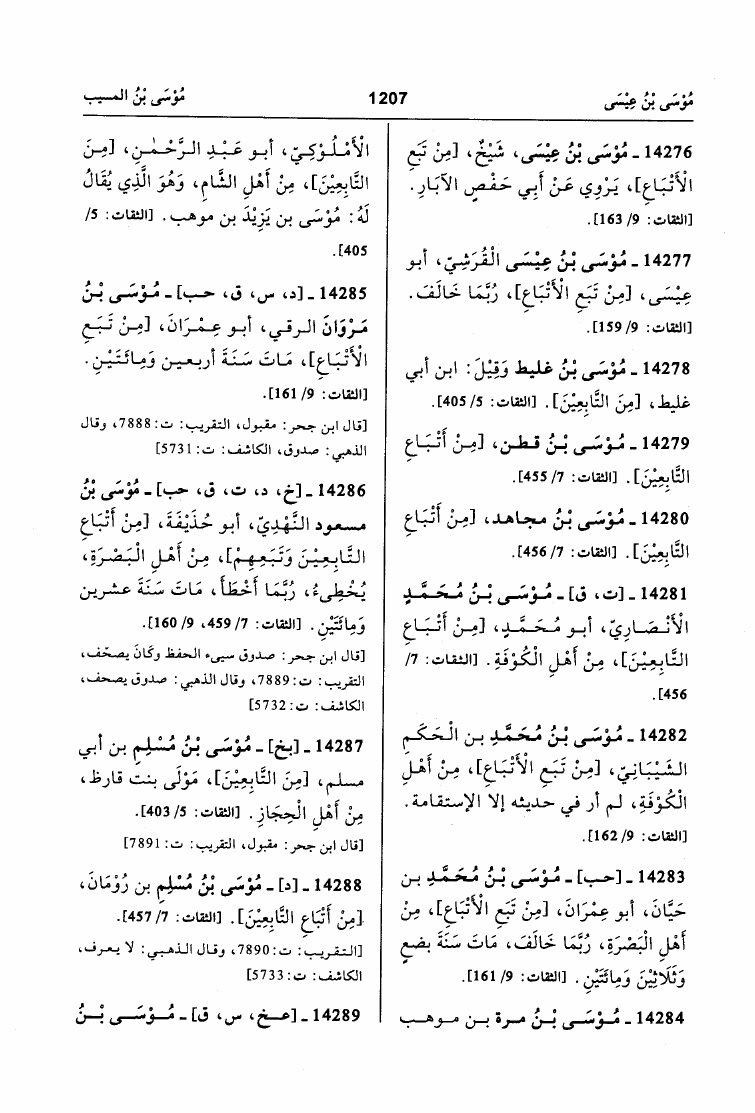 مُوْسَى بْنُ عِيْسَى
1207
مُوْسَى بْنُ المسيب
14276 ـ مُوْسَى بْنُ عِيْسَى، شَيْخٌ، [مِنْ تَبَعِ
الْأَتْبَاعِ]، يَرْوِي عَنْ أَبِي حَفْصٍ الآبَارِ.
[الثقات: 9/ 163].
14277 ـ مُوْسَى بْنُ عِيْسَى الْقُرَشِيّ، أبو
عِيْسَى، [مِنْ تَبَعِ الْأَتْبَاعِ]، رُبَّمَا خَالَفَ.
[الثقات: 9/ 159].
14278 ـ مُوْسَى بْنُ غليط وَقِيْلَ: ابن أبي
غليط، [مِنَ التَّابِعِيْنَ]. [الثقات: 5/ 405].
14279 ـ مُوْسَى بْنُ قطن، [مِنْ أَتْبَاعِ
التَّابِعِيْنَ]. [الثقات: 7/ 455].
14280 ـ مُوْسَى بْنُ مجاهد، [مِنْ أَتْبَاعِ
التَّابِعِيْنَ]. [الثقات: 7/ 456].
14281 ـ [ت، ق] ـ مُوْسَى بْنُ مُحَمَّدٍ
الْأَنْصَارِيّ، أبو مُحَمَّدٍ، [مِنْ أَتْبَاعِ
التَّابِعِيْنَ]، مِنْ أَهْلِ الْكُوْفَةِ. [الثقات: 7/
456].
14282 ـ مُوْسَى بْنُ مُحَمَّدِ بن الْحَكَمِ
الشَّيْبَانِيّ، [مِنْ تَبَعِ الْأَتْبَاعِ]، مِنْ أَهْلِ
الْكُوْفَةِ، لم أر في حديثه إلا الإستقامة.
[الثقات: 9/ 162].
14283 ـ [حب] ـ مُوْسَى بْنُ مُحَمَّدِ بن
حَيَّانَ، أبو عِمْرَانَ، [مِنْ تَبَعِ الْأَتْبَاعِ]، مِنْ
أَهْلِ الْبَصْرَةِ، رُبَّمَا خَالَفَ، مَاتَ سَنَةَ بضع
وَثَلَاثِيْنَ وَمِائَتَيْنِ. [الثقات: 9/ 161].
14284 ـ مُوْسَى بْنُ مرة بن موهب
الْأَمْلُوْكِيّ، أبو عَبْدِ الرَّحْمٰنِ، [مِنَ
التَّابِعِيْنَ]، مِنْ أَهْلِ الشَّامِ، وَهُوَ الَّذِي يُقَالُ
لَهُ: مُوْسَى بن يَزِيْدَ بن موهب. [الثقات: 5/
405].
14285 ـ [د، س، ق، حب] ـ مُوْسَى بْنُ
مَرْوَانَ الرقي، أبو عِمْرَانَ، [مِنْ تَبَعِ
الْأَتْبَاعِ]، مَاتَ سَنَةَ أربعين وَمِائَتَيْنِ.
[الثقات: 9/ 161].
[قال ابن حجر: مقبول، التقريب: ت: 7888، وقال
الذهبي: صدوق، الكاشف: ت: 5731]
14286 ـ [خ، د، ت، ق، حب] ـ مُوْسَى بْنُ
مسعود النَّهْدِيّ، أبو حُذَيْفَةَ، [مِنْ أَتْبَاعِ
التَّابِعِيْنَ وَتَبَعِهِمْ]، مِنْ أَهْلِ الْبَصْرَةِ،
يُخْطِيءُ، رُبَّمَا أَخْطَأَ، مَاتَ سَنَةَ عشرين
وَمِائَتَيْنِ. [الثقات: 7/ 459، 9/ 160].
[قال ابن حجر: صدوق سيىء الحفظ وكَانَ يصحّف،
التقريب: ت: 7889، وقال الذهبي: صدوق يصحف،
الكاشف: ت: 5732]
14287 ـ [بخ] ـ مُوْسَى بْنُ مُسْلِمِ بن أبي
مسلم، [مِنَ التَّابِعِيْنَ]، مَوْلَى بنت قارظ،
مِنْ أَهْلِ الْحِجَازِ. [الثقات: 5/ 403].
[قال ابن حجر: مقبول، التقريب: ت: 7891]
14288 ـ [د] ـ مُوْسَى بْنُ مُسْلِمِ بن رُوْمَانَ،
[مِنْ أَتْبَاعِ التَّابِعِيْنَ]. [الثقات: 7/ 457].
[التقريب: ت: 7890، وقال الذهبي: لا يعرف،
الكاشف: ت: 5733]
14289 ـ [عخ، س، ق] ـ مُوْسَى بْنُ